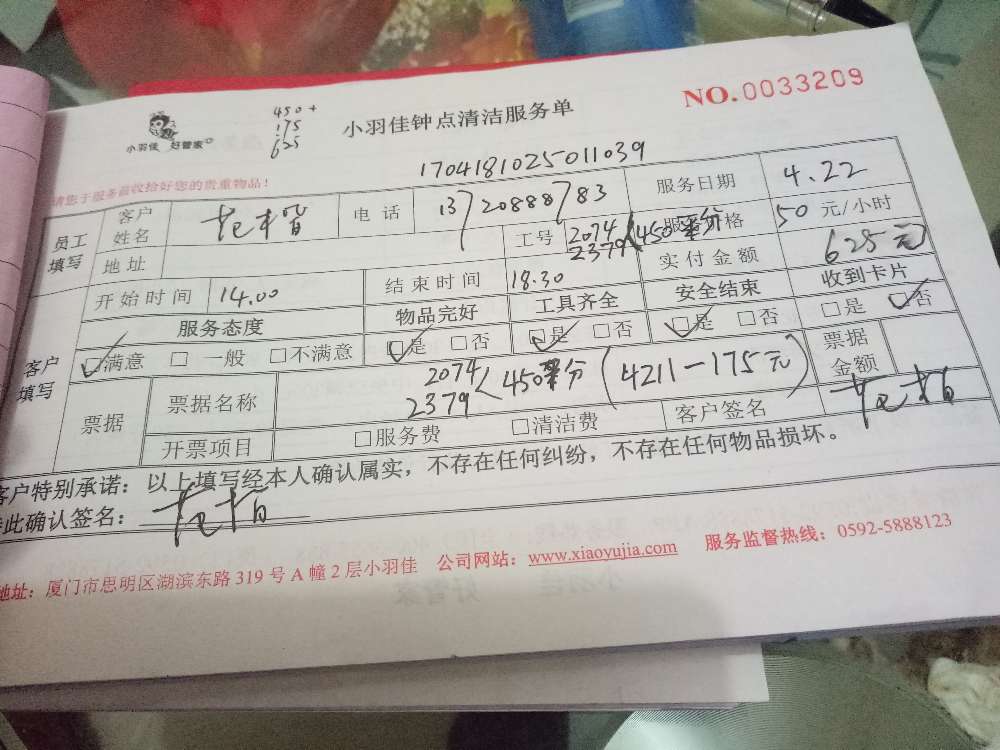 NO.0033209
450+
175
625
小羽佳 好管家
小羽佳钟点清洁服务单
1704181025011039
请您于服务前收拾好您的贵重物品!
员工填写 客户姓名 电话 13720888783 服务日期 4.22
地址 工号 2074 2379 450 平分 服务价格 50 元/小时
开始时间 14.00 结束时间 18.30 实付金额 625元
服务态度 物品完好 工具齐全 安全结束 收到卡片
客户填写 □满意 □一般 □不满意 □是 □否 □是 □否 □是 □否 □是 □否
票据 票据名称 2074 2379 450 平分 (4211-175元) 票据金额
开票项目 □服务费 □清洁费 客户签名
客户特别承诺:以上填写经本人确认属实,不存在任何纠纷,不存在任何物品损坏。
特此确认签名:
地址:厦门市思明区湖滨东路319号A幢2层小羽佳 公司网站:www.xiaoyujia.com 服务监督热线:0592-5888123